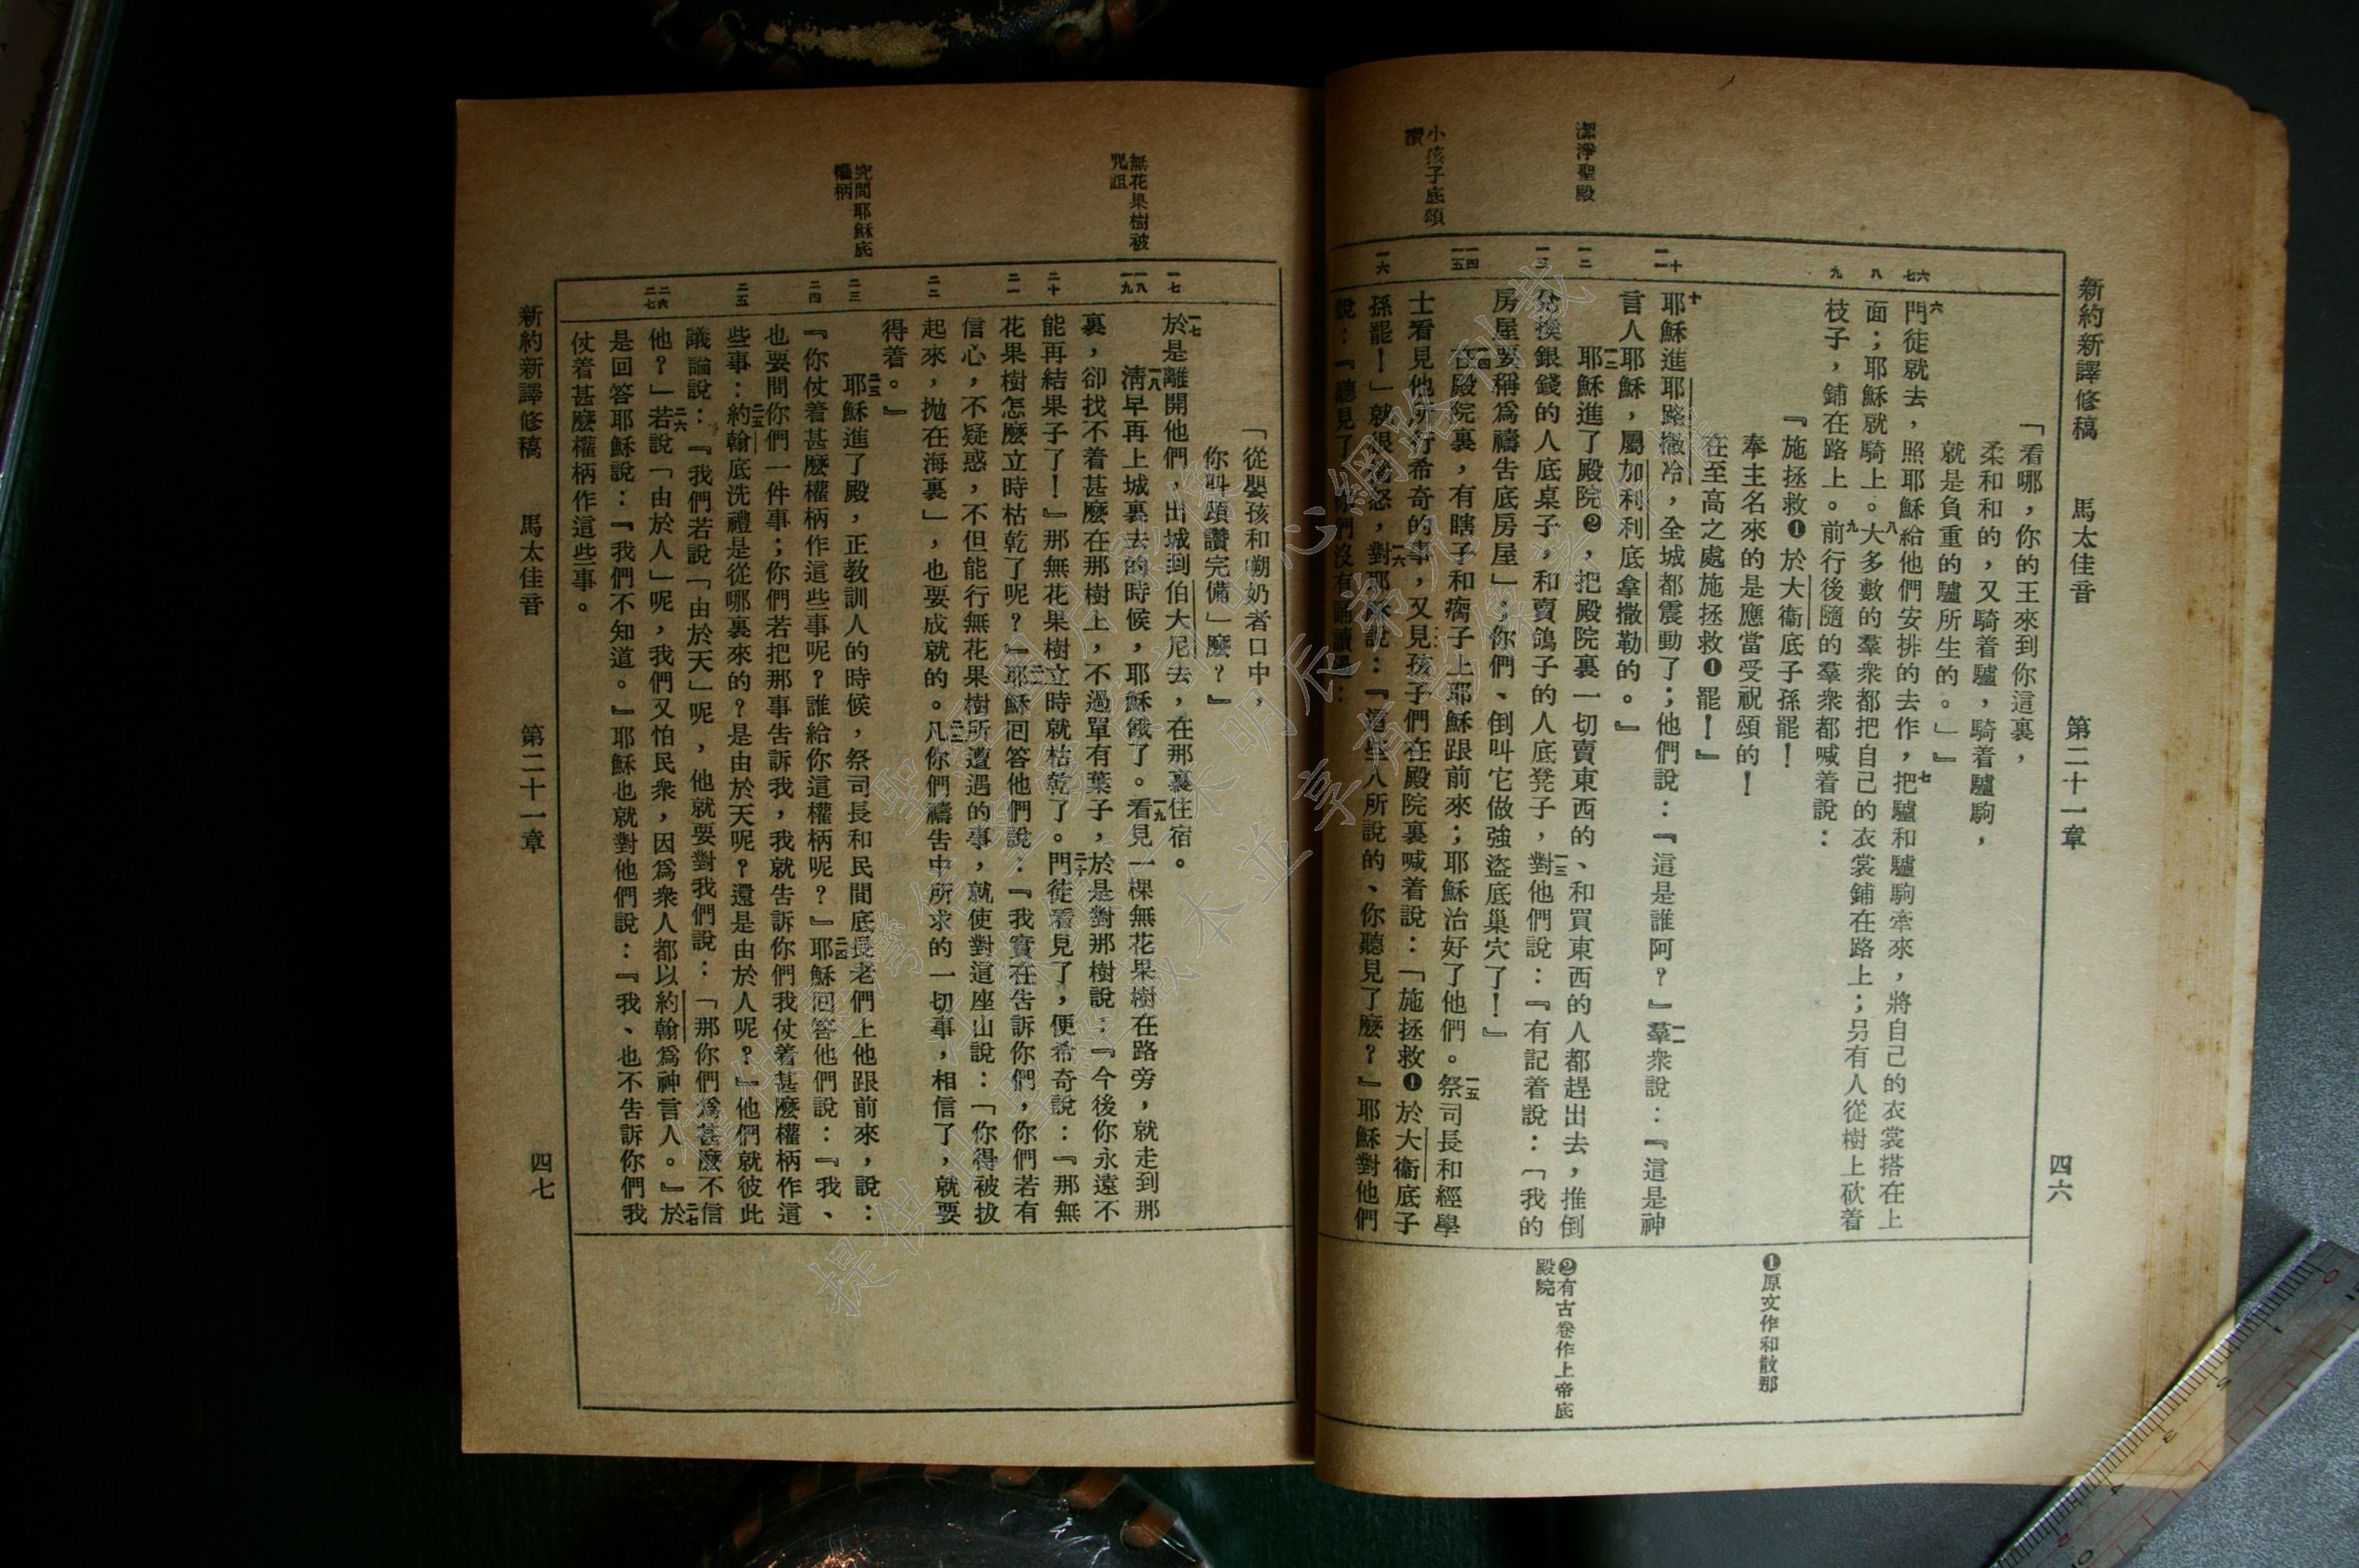 新約新譯修稿 馬太佳音 第二十一章 四六
潔淨聖殿
小孩子底頌
讚
六
七
八
九
十
一一
一二
一三
一四
一五
一六
「看哪，你的王來到你這裏，
柔和和的，又騎着驢，騎着驢駒，
就是負重的驢所生的。」』
六門徒就去，照耶穌給他們安排的去作，七把驢和驢駒牽來，將自己的衣裳搭在上
面；耶穌就騎上。八大多數的羣衆都把自己的衣裳鋪在路上；另有人從樹上砍着
枝子，鋪在路上。九前行後隨的羣衆都喊着說：
『施拯救❶於大衞底子孫罷！
奉主名來的是應當受祝頌的！
在至高之處施拯救❶罷！』
十耶穌進耶路撒冷，全城都震動了；他們說：『這是誰阿？』一一羣衆說：『這是神
言人耶穌，屬加利利底拿撒勒的。』
一二耶穌進了殿院❷，把殿院裏一切賣東西的、和買東西的人都趕出去，推倒
兌換銀錢的人底桌子，和賣鴿子的人底凳子，一三對他們說：『有記着說：「我的
房屋要稱爲禱吿底房屋」；你們、倒叫它做強盜底巢穴了！』
一四在殿院裏，有瞎子和瘸子上耶穌跟前來；耶穌治好了他們。一五祭司長和經學
士看見他所行希奇的事，又見孩子們在殿院裏喊着說：「施拯救❶於大衞底子
孫罷！」就很惱怒，一六對耶穌說：『這些人所說的、你聽見了麼？』耶穌對他們
說：『聽見了；你們沒有誦讀過：
❶原文作和散那
❷有古卷作上帝底
殿院
無花果樹被
咒詛
究問耶穌底
權柄
一七
一八
一九
二十
二一
二二
二三
二四
二五
二六
二七
「從嬰孩和嘲奶者口中，
你叫頌讚完備」麼？』
一七於是離開他們，出城到伯大尼去，在那裏住宿。
一八淸早再上城裏去的時候，耶穌餓了。一九看見一棵無花果樹在路旁，就走到那
裏，卻找不着甚麼在那樹上，不過單有葉子，於是對那樹說：『今後你永遠不
能再結果子了！』那無花果樹立時就枯乾了。二十門徒看見了，便希奇說：『那無
花果樹怎麼立時枯乾了呢？』二一耶穌回答他們說：『我實在吿訴你們，你們若有
信心，不疑惑，不但能行無花果樹所遭遇的事，就使對這座山說：「你得被拔
起來，拋在海裏」，也要成就的。二二凡你們禱吿中所求的一切事，相信了，就要
得着。』
二三耶穌進了殿，正敎訓人的時候，祭司長和民間底長老們上他跟前來，說：
『你仗着甚麼權柄作這些事呢？誰給你這權柄呢？』二四耶穌回答他們說：『我、
也要問你們一件事；你們若把那事吿訴我，我就吿訴你們我仗着甚麼權柄作這
些事：二五約翰底洗禮是從哪裏來的？是由於天呢？還是由於人呢？』他們就彼此
議論說：『我們若說「由於天」呢，他就要對我們說：「那你們爲甚麼不信
他？」二六若說「由於人」呢，我們又怕民衆，因爲衆人都以約翰爲神言人。』二七於
是回答耶穌說：『我們不知道。』耶穌也就對他們說：『我、也不吿訴你們我
仗着甚麼權柄作這些事。
新約新譯修稿 馬太佳音 第二十一章 四七